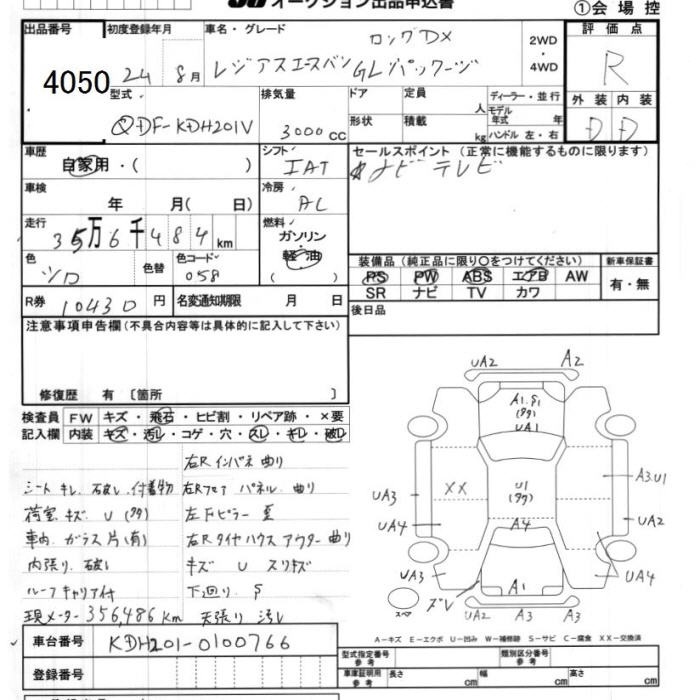 オークション出品申込書 ①会場控
出品番号 初度登録年月 車名・グレード ロングDX 2WD・4WD 評価点
4050 24 8月 レジアスエースバン GLパッケージ R
型式 排気量 ドア 定員 人 ディーラー・並行 外装 内装
QDF-KDH201V 3000cc 形状 積載 kg モデル年式 年 ハンドル 左・右 D D
車歴 シフト セールスポイント (正常に機能するものに限ります)
自家用・( ) IAT ナビ テレビ
車検 冷房
年 月( 日) AC
走行 燃料
35万6千484km ガソリン・軽油 ( )
色 色替 色コード 装備品 (純正品に限り○をつけてください) 新車保証書
シロ 058 PS PW ABS エアB AW 有・無
SR ナビ TV カワ
R券 10430円 名変通知期限 月 日 後日品
注意事項申告欄(不具合内容等は具体的に記入して下さい)
修復歴 有 〔箇所 〕
検査員 FW キズ・飛石・ヒビ割・リペア跡・×要
記入欄 内装 キズ・汚レ・コゲ・穴・スレ・キレ・破レ
右Rインパネ 曲り
シート キレ. 破レ. 付着物 右Rフロア パネル. 曲り
荷室 キズ. U (多々) 左Fピラー
車内 ガラス片(有) 右Rタイヤハウス アウター 曲り
内張り. 破レ キズ U スリキズ
ルーフキャリア付 下廻り. S
現メーター 356,486 km 天張り 汚レ
車台番号 KDH201-0100766
登録番号
UA2 A2
A1.S1
(多々)
UA1
XX U1
(多々)
A3.U1
UA3 UA2
UA4 A4
UA3 UA4
A1
スペア ズレ
UA2 A3 A3
A-キズ E-エクボ U-凹み W-補修跡 S-サビ C-腐食 XX-交換済
型式指定番号 参考 類別区分番号 参考
車庫証明用 参考 長さ cm 幅 cm 高さ cm